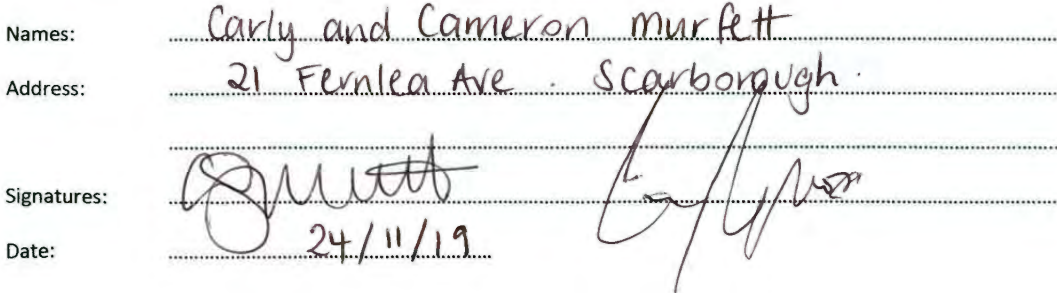 Names: Carly and Cameron Murfett
Address: 21 Fernlea Ave. Scarborough.
Signatures:
Date: 24/11/19